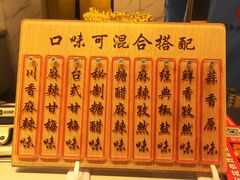 口味可混合搭配
蒜香原味
鲜香孜然味
经典椒盐味
麻辣孜然味
糖醋麻辣味
秘制糖醋味
台式甘梅味
麻辣甘梅味
川香麻辣味